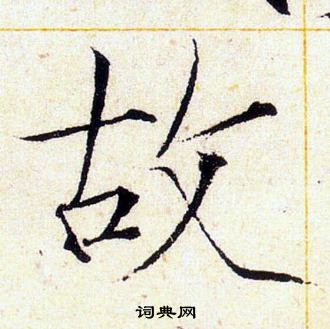 故
词典网